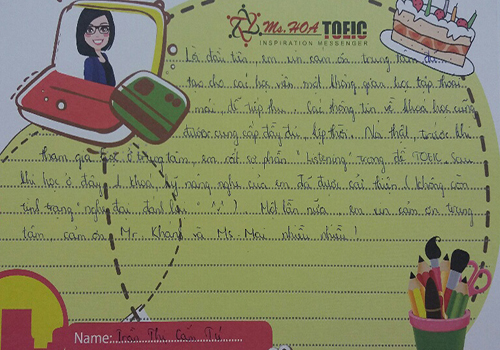 Ms. HOA TOEIC
INSPIRATION MESSENGER
Lời đầu tiên, em xin cảm ơn trung tâm đã
tạo cho các học viên một không gian học tập thoải
mái, dễ tiếp thu. Các thông tin về khoá học cũng
được cung cấp đầy đủ, kịp thời. Nói thật, trước khi
tham gia học ở trung tâm, em rất sợ phần "Listening" trong đề TOEIC, sau
khi học ở đây 1 khoá, kỹ năng nghe của em đã được cải thiện (không còn
tình trạng "nghe đại đánh bừa" ). Một lần nữa em xin cảm ơn trung
tâm, cảm ơn Mr. Khanh và Ms. Mai nhiều nhiều!
Name: Trần Thị Cẩm Tú